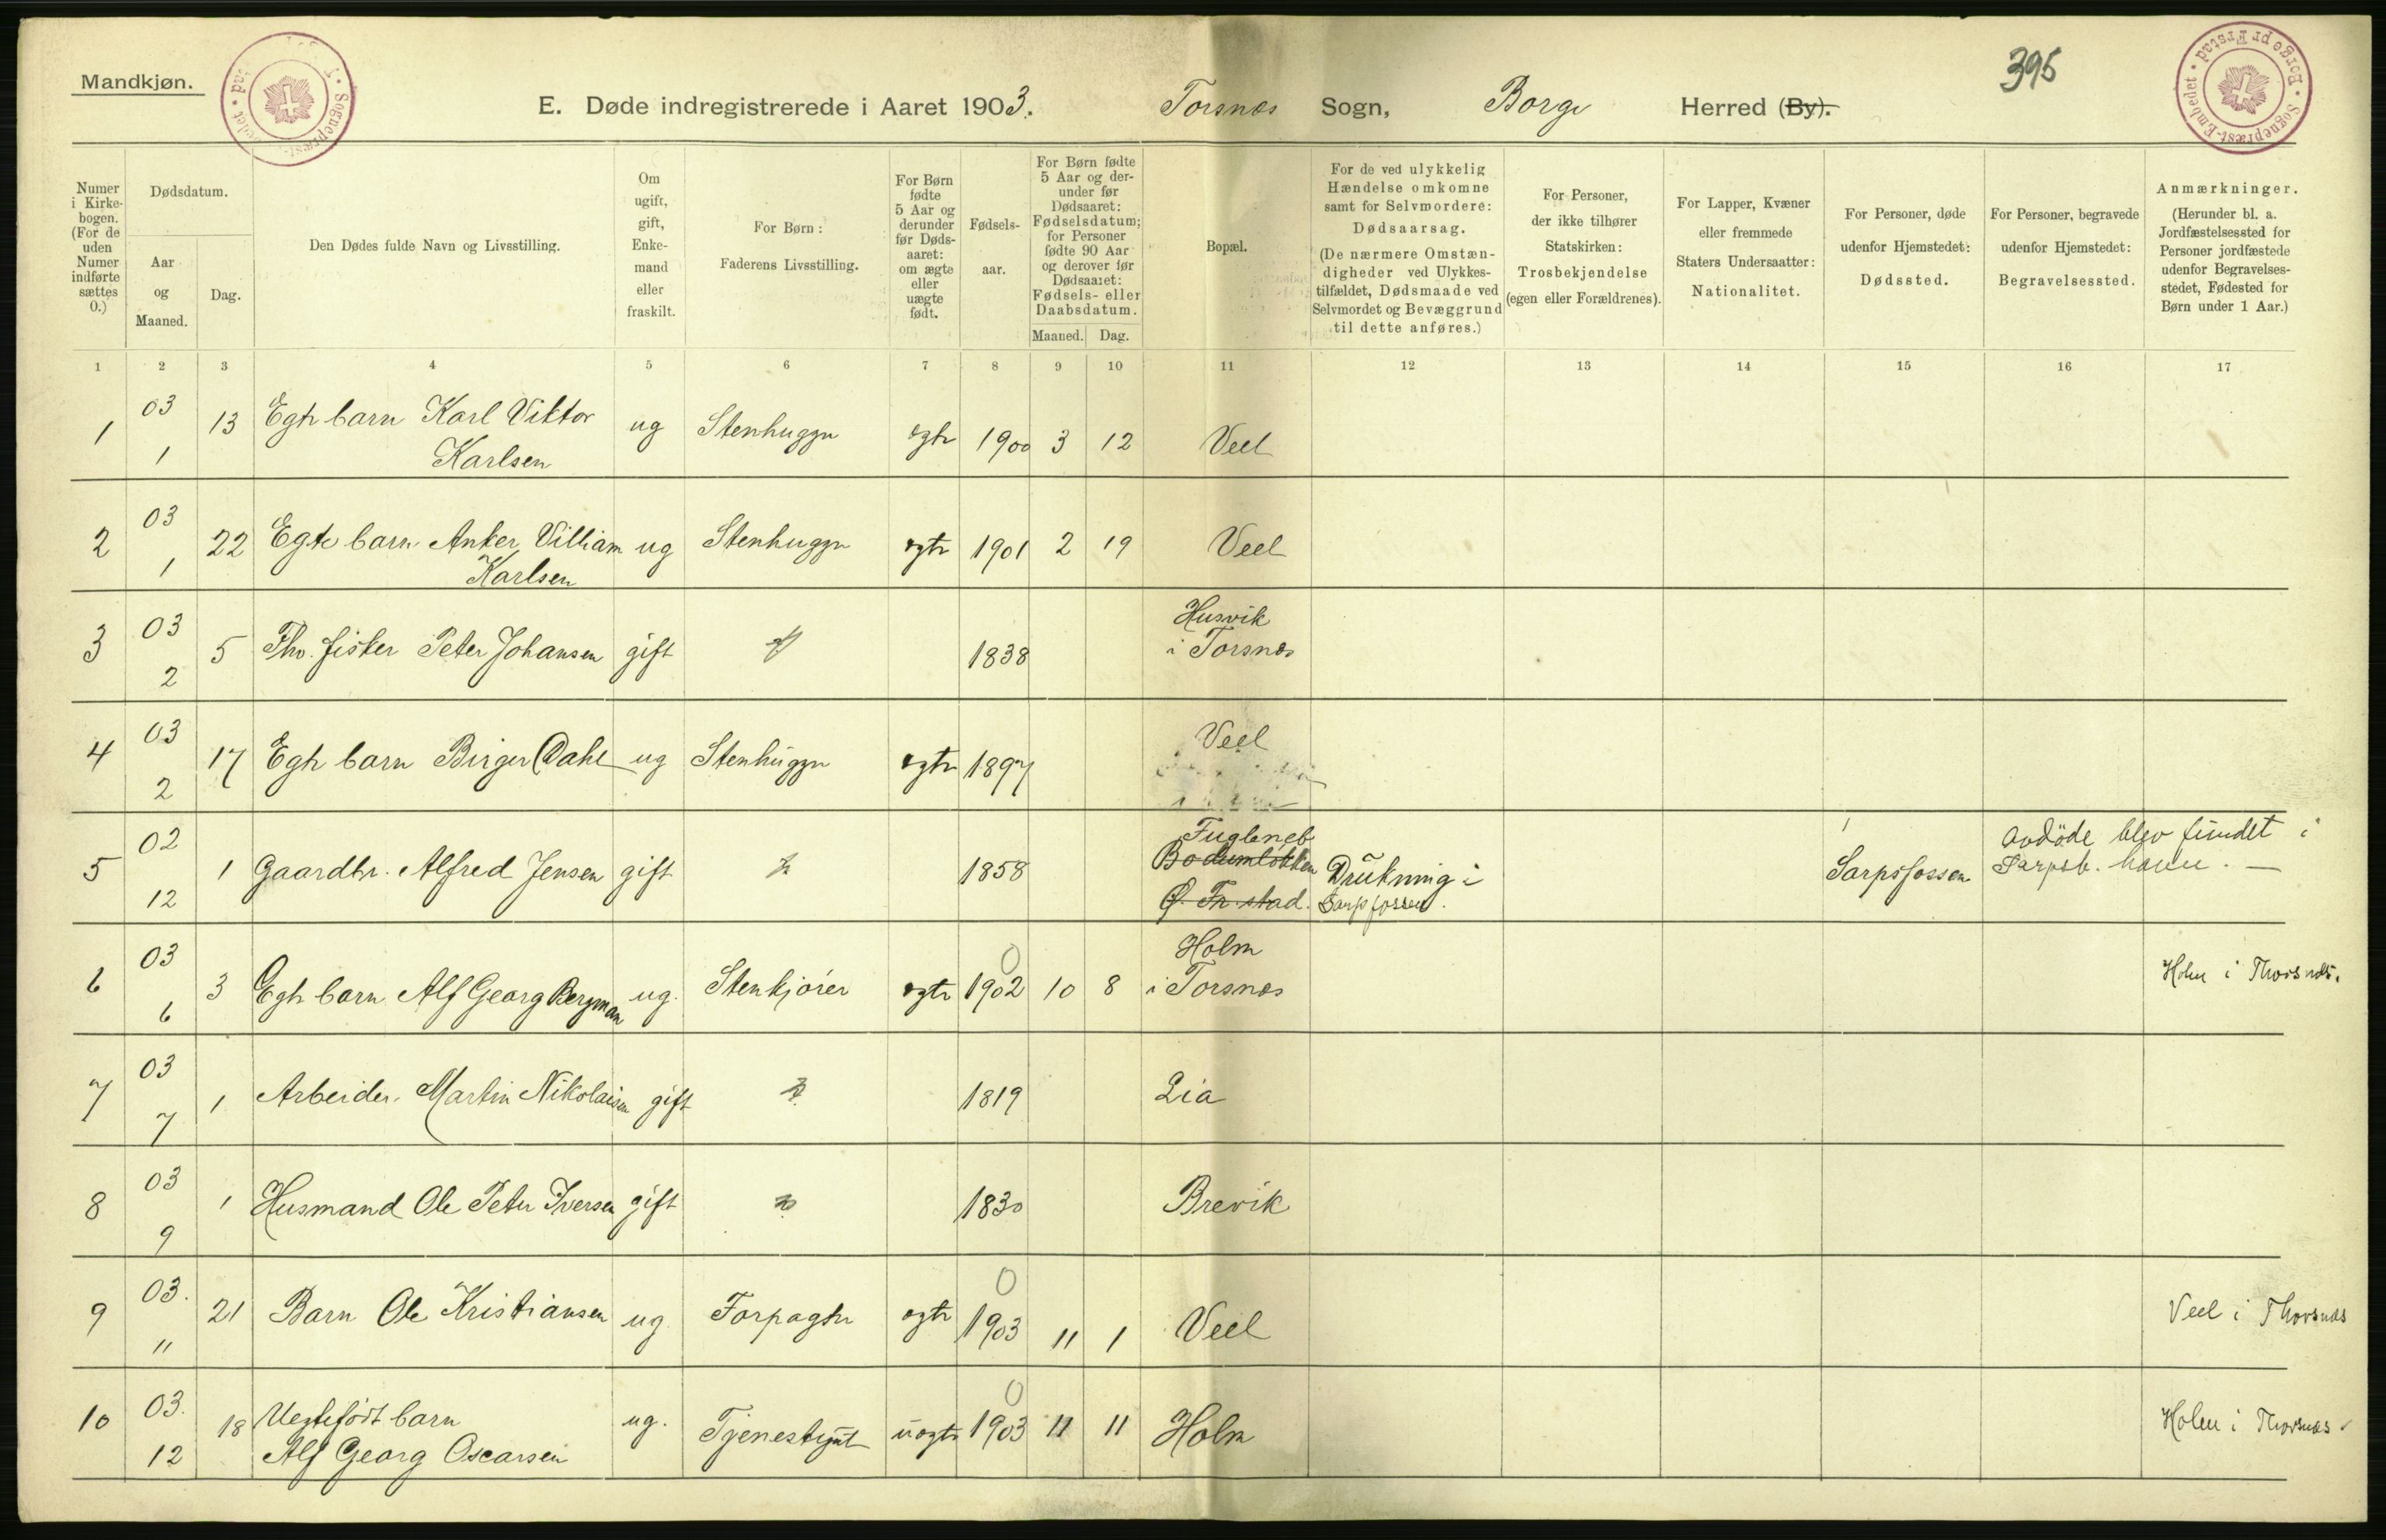 Mandkjøn.
395
E. Døde indregistrerede i Aaret 1903. Torsnes Sogn, Borge Herred (By).
Sognepræst-Embedet · Borge pr Frstad ·
Numer i Kirkebogen. (For de uden Numer indførte sættes 0.)
Dødsdatum.
Aar og Maaned.
Dag.
Den Dødes fulde Navn og Livsstilling.
Om ugift, gift, Enkemand eller fraskilt.
For Børn: Faderens Livsstilling.
For Børn fødte 5 Aar og derunder før Dødsaaret: om ægte eller uægte født.
Fødselsaar.
For Børn fødte 5 Aar og derunder før Dødsaaret: Fødselsdatum; for Personer fødte 90 Aar og derover før Dødsaaret: Fødsels- eller Daabsdatum.
Maaned. Dag.
Bopæl.
For de ved ulykkelig Hændelse omkomne samt for Selvmordere: Dødsaarsag. (De nærmere Omstændigheder ved Ulykkestilfældet, Dødsmaade ved Selvmordet og Bevæggrund til dette anføres.)
For Personer, der ikke tilhører Statskirken: Trosbekjendelse (egen eller Forældrenes).
For Lapper, Kvæner eller fremmede Staters Undersaatter: Nationalitet.
For Personer, døde udenfor Hjemstedet: Dødssted.
For Personer, begravede udenfor Hjemstedet: Begravelsessted.
Anmærkninger. (Herunder bl. a. Jordfæstelsessted for Personer jordfæstede udenfor Begravelsesstedet, Fødested for Børn under 1 Aar.)
1 2 3 4 5 6 7 8 9 10 11 12 13 14 15 16 17
1 03 1 13 Egte barn Karl Viktor Karlsen ug Stenhugger egte 1900 3 12 Veel
2 03 1 22 Egte barn Anker Villiam Karlsen ug Stenhugger egte 1901 2 19 Veel
3 03 2 5 Fhv. fisker Peter Johansen gift 1838 Husvik i Torsnes
4 03 2 17 Egte barn Birger Dahl ug Stenhugger egte 1897 Veel
5 02 12 1 Gaardbr. Alfred Jensen gift 1858 Fugleneb Bodumløkken Ø. Fr.stad. Drukning i Sarpsfossen. Sarpsfossen Avdöde blev fundet i Sarpsb. havn. —
6 03 6 3 Egte barn Alf Georg Bergman ug. Stenkjører egte 0 1902 10 8 Holm i Torsnes Holm i Thorsnæs.
7 03 7 1 Arbeider. Martin Nikolaisen gift 1819 Lia
8 03 9 1 Husmand Ole Peter Iversen gift 1830 Brevik
9 03. 11 21 Barn Ole Kristiansen ug Forpagter egte 0 1903 11 1 Veel Veel i Thorsnæs
10 03. 12 18 Uegtefødt barn Alf Georg Oscarsen ug. Tjenestgut uegte 0 1903 11 11 Holm Holm i Thorsnæs